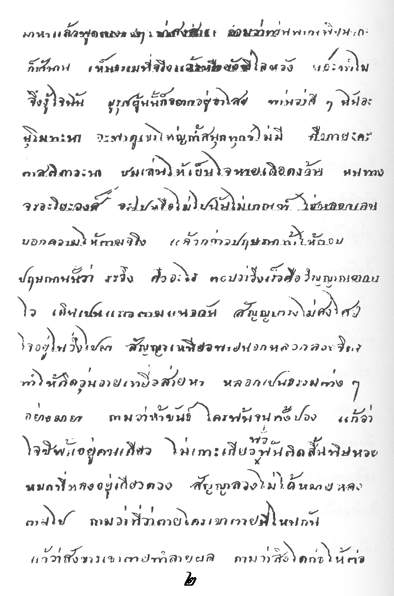 มาหาแล้วพูดตรงๆ น่าสงสาร ถามว่าท่านพากเพียรมา
ก็ช้านาน เห็นธรรมที่จริงแล้วหรือยังที่ใจหวัง เอ๊ะทำไม
จึงรู้ใจฉัน บุรุษผู้นั้นก็อยากอยู่อาไสย ท่านว่าดี ๆ ฉันอะ
นุโมทะนา จะพาดูเขาใหญ่ถ้ำสนุกทุกข์ไม่มี คือกายะคะ
ตาสติภาวะนา ชมเล่นให้เย็นใจหายเดือดร้อน หนทาง
จรอะริยะวงศ์ จะไปหรือไม่ไปฉันไม่เกณฑ์ ใช่หลอกเล่น
บอกความให้ตามจริง แล้วกล่าวปฤษณาท้าให้ตอบ
ปฤษณานั้นว่า ระวิ่ง คืออะไร ตอบว่าวิ่งเร็วคือวิญญาณอาการ
ใจ เดินเปนแถวตามแนวกัน สัญญาตรงไม่สงไสย
ใจอยู่ในวิ่งไปมา สัญญาเหนี่ยวภายนอกหลอกลวงจิต
ทำให้คิดวุ่นวายเที่ยวส่ายหา หลอกเปนธรรมต่าง ๆ
อย่างมายา ถามว่าห้าขันธ์ ใครพ้นจนทั้งปวง แก้ว่า
ใจซิพ้นอยู่คนเดียว ไม่เกาะเกี่ยวพัวพันติดสิ้นพิษหวง
หมดที่หลงอยู่เดียวดวง สัญญาลวงไม่ได้หมายหลง
ตามไป ถามว่าที่ว่าตายใครเขาตายที่ไหนกัน
แก้ว่าสังขารเขาตายทำลายผล ถามว่าสิ่งใดก่อให้ต่อ
๒